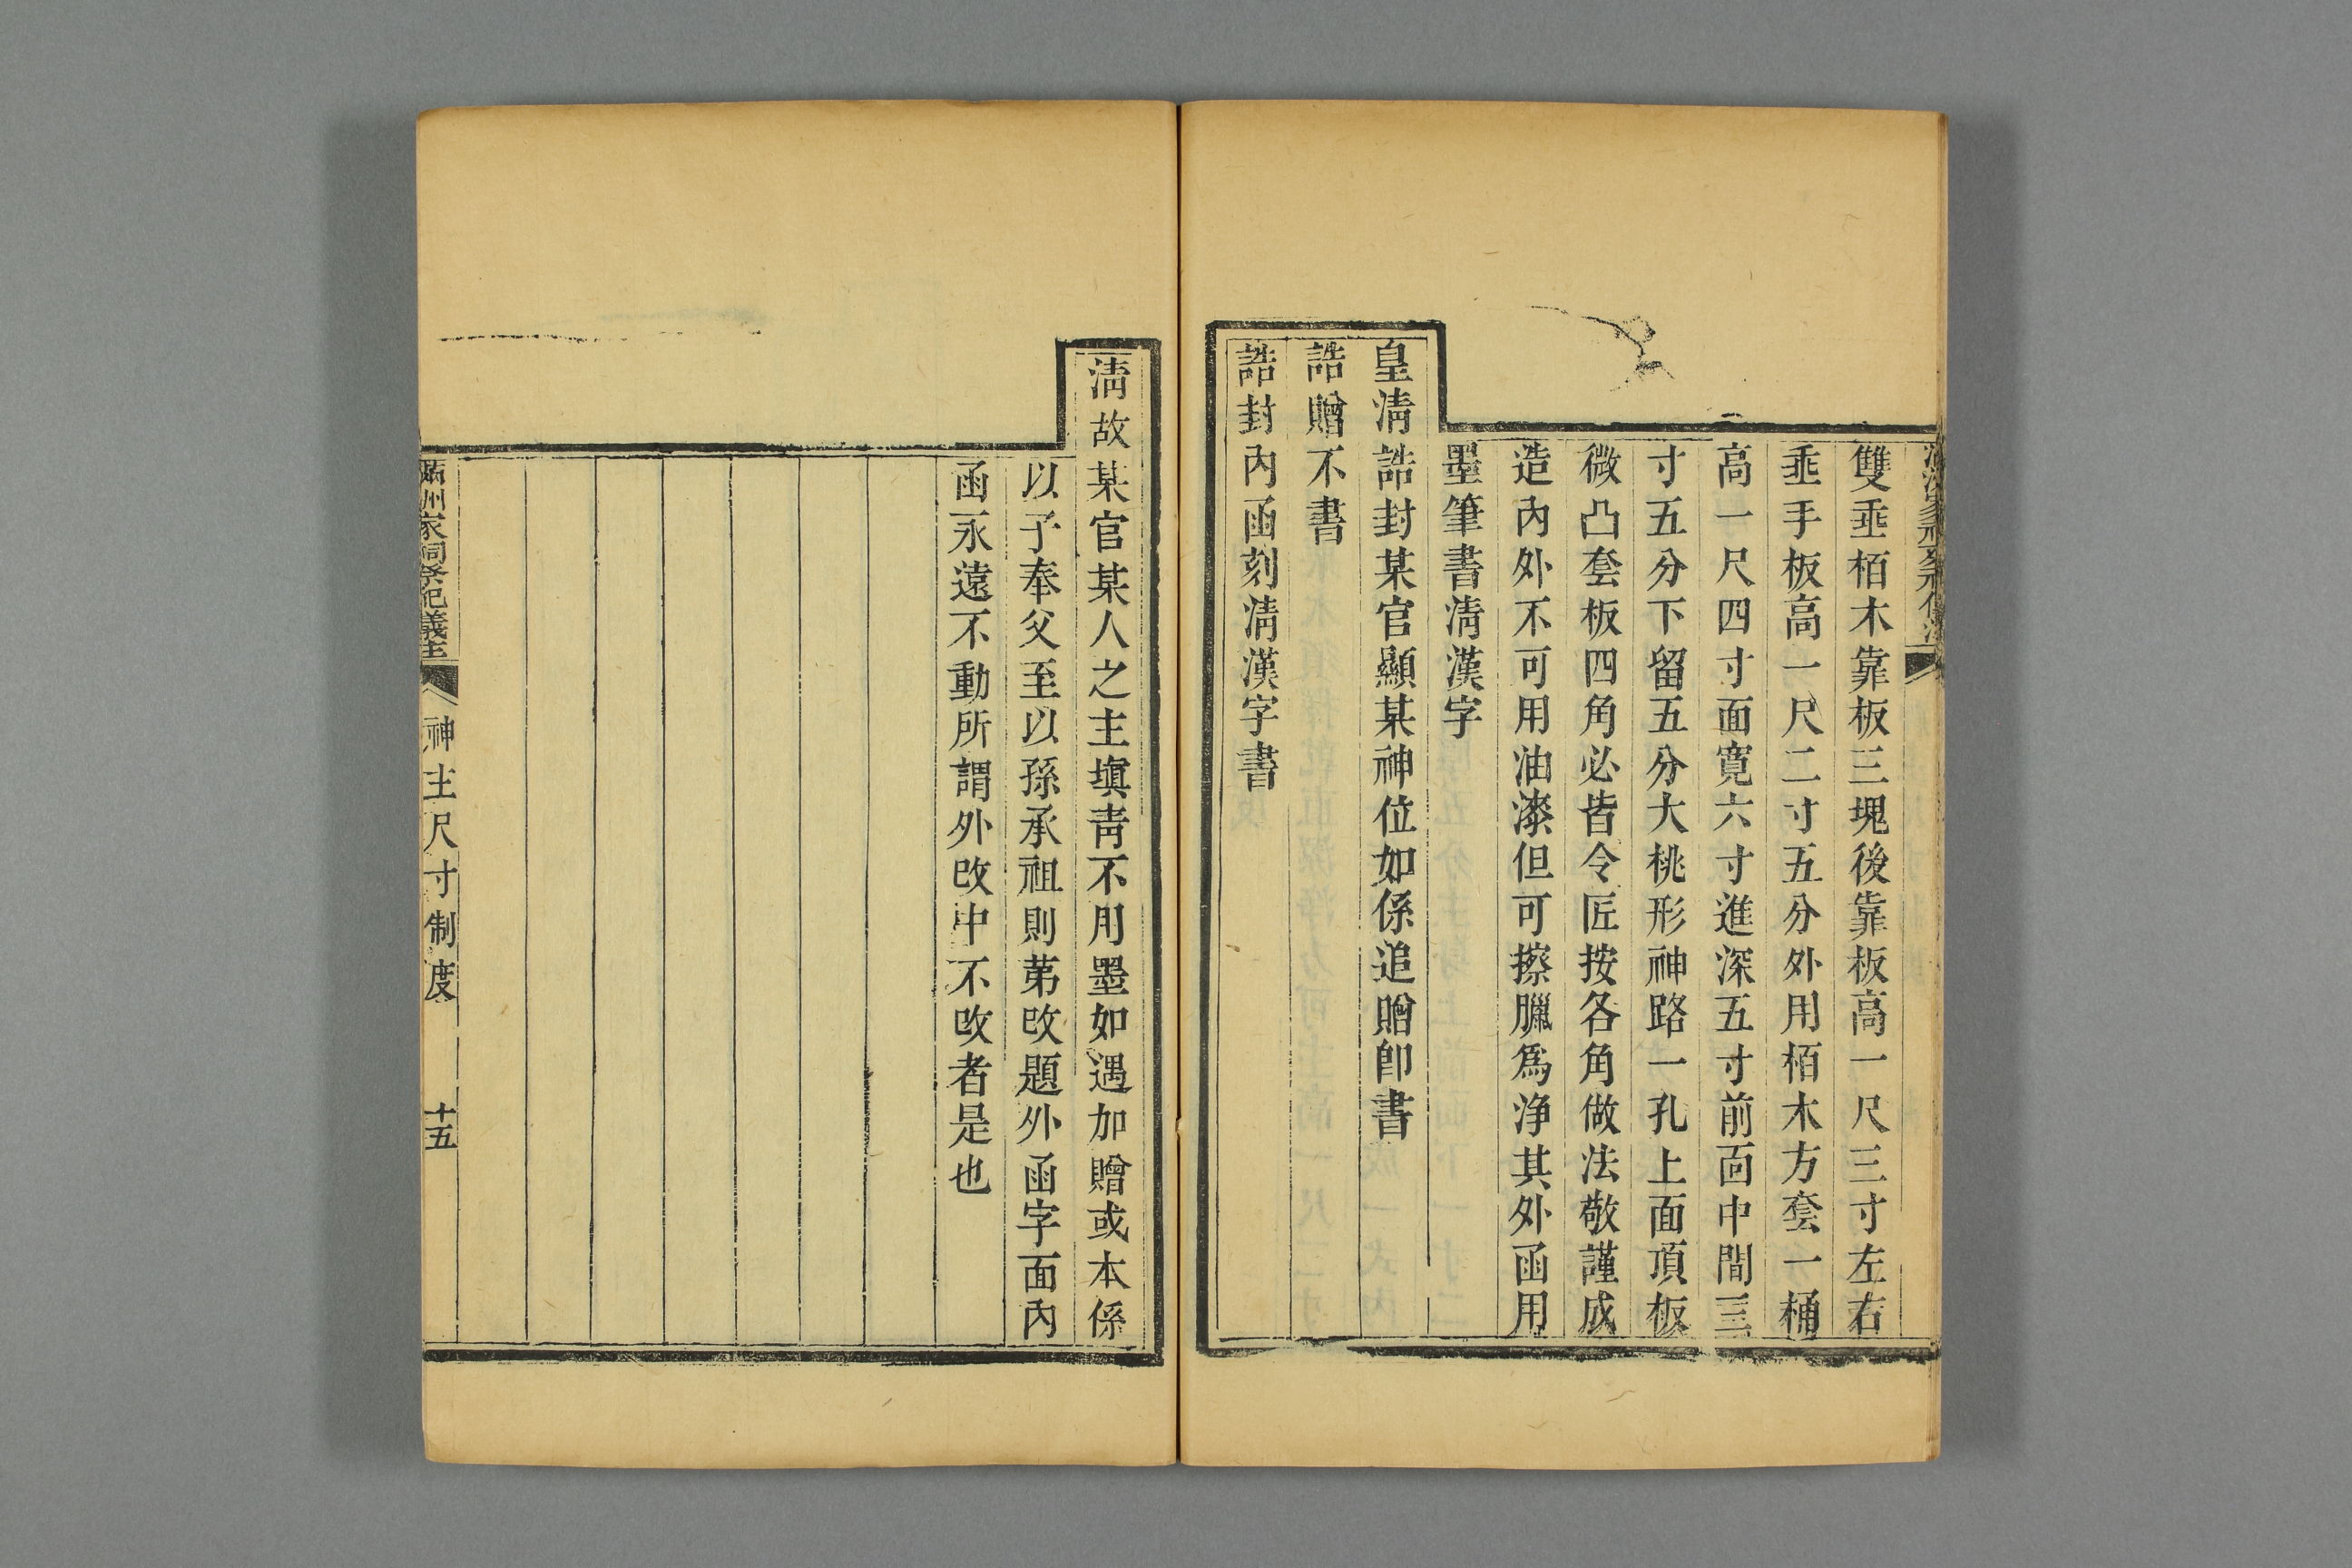 雙垂栢木靠板三塊後靠板高一尺三寸左右
垂手板高一尺二寸五分外用栢木方套一桶
高一尺四寸面寬六寸進深五寸前面中間三
寸五分下留五分大桃形神路一孔上面頂板
微凸套板四角必皆令匠按各角做法敬謹成
造內外不可用油漆但可擦臘爲净其外函用
墨筆書淸漢字
皇淸誥封某官顯某神位如係追贈卽書
誥贈不書
誥封內函刻淸漢字書
淸故某官某人之主塡靑不用墨如遇加贈或本係
以子奉父至以孫承祖則第改題外函字面內
函永遠不動所謂外改中不改者是也
滿洲家祠祭祀義注
神主尺寸制度
十五